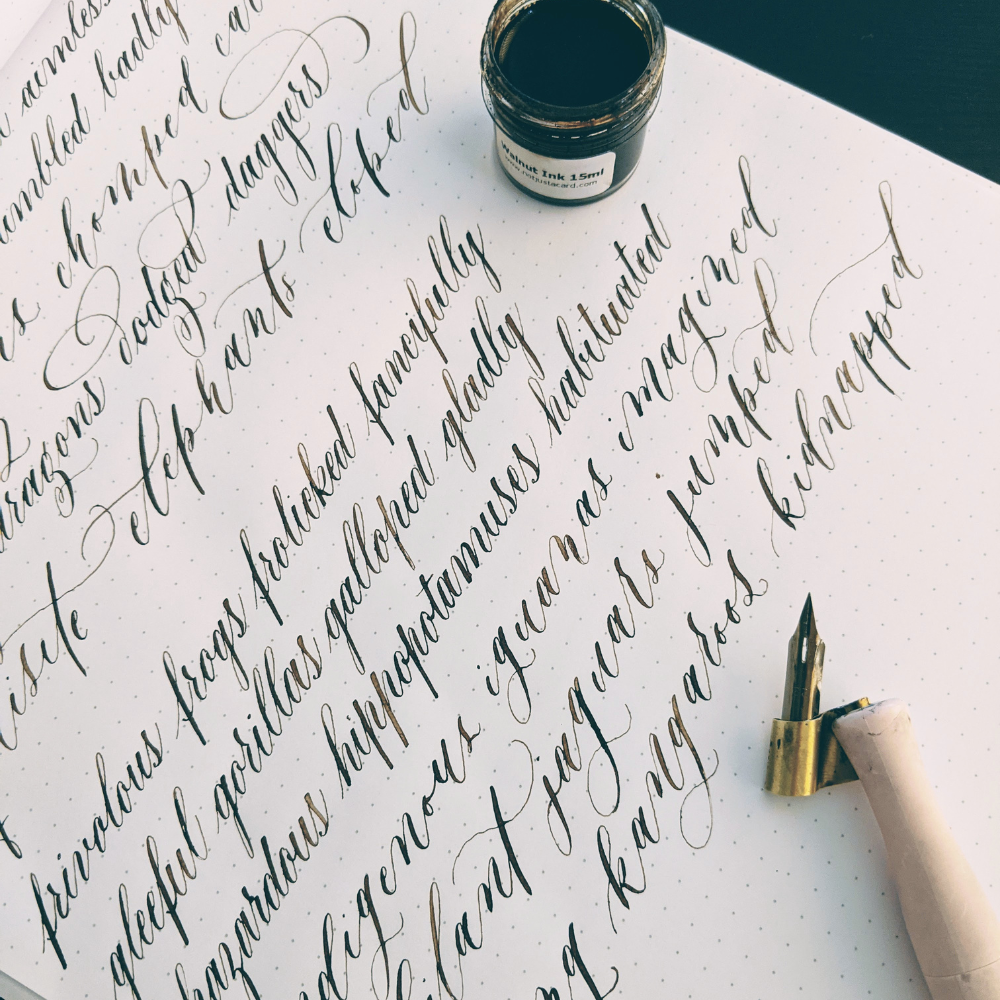 aimless
umbled badly
rs chomped ca
dragons dodged daggers
isite elephants eloped
frivolous frogs frolicked fancifully
gleeful gorillas galloped gladly
hazardous hippopotamuses habituated
ndigenous iguanas imagined
ilant jaguars jumped
ng kangaroos kidnapped
Walnut Ink 15ml
www.notjustacard.com